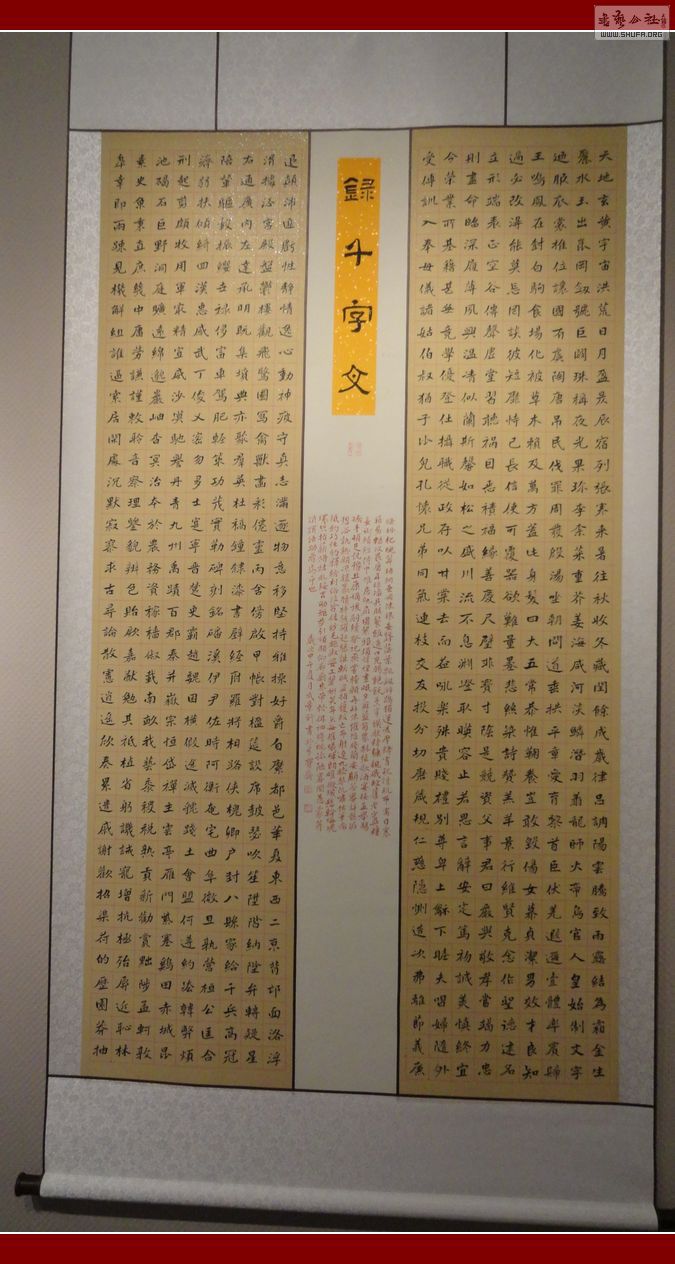 天地玄黃宇宙洪荒日月盈昃辰宿列張寒來暑往秋收冬藏閏餘成歲律呂調陽雲騰致雨露結為霜金生
麗水玉出崑岡劍號巨闕珠稱夜光果珍李柰菜重芥薑海鹹河淡鱗潛羽翔龍師火帝鳥官人皇始制文字
迺服衣裳推位讓國有虞陶唐弔民伐罪周發殷湯坐朝問道垂拱平章愛育黎首臣伏戎羌遐邇壹體率賓歸
王鳴鳳在樹白駒食場化被草木賴及萬方蓋此身髮四大五常恭惟鞠養豈敢毀傷女慕貞潔男效才良知
過必改得能莫忘罔談彼短靡恃己長信使可覆器欲難量墨悲絲染詩讚羔羊景行維賢克念作聖德建名
立形端表正空谷傳聲虛堂習聽禍因惡積福緣善慶尺璧非寶寸陰是競資父事君曰嚴與敬孝當竭力忠
則盡命臨深履薄夙興溫清似蘭斯馨如松之盛川流不息淵澄取映容止若思言辭安定篤初誠美慎終宜
令榮業所基籍甚無竟學優登仕攝職從政存以甘棠去而益詠樂殊貴賤禮別尊卑上和下睦夫唱婦隨外
受傅訓入奉母儀諸姑伯叔猶子比兒孔懷兄弟同氣連枝交友投分切磨箴規仁慈隱惻造次弗離節義廉
錄千字文
退顛沛匪虧性靜情逸心動神疲守真志滿逐物意移堅持雅操好爵自縻都邑華夏東西二京背邙面洛浮
渭據涇宮殿盤鬱樓觀飛驚圖寫禽獸畫彩僊靈丙舍傍啟甲帳對楹筵設席鼓瑟吹笙陞階納陛弁轉疑星
右通廣內左達承明既集墳典亦聚群英杜稿鍾隸漆書壁經府羅將相路俠槐卿戶封八縣家給千兵高冠
陪輦驅轂振纓世祿侈富車駕肥輕策功茂實勒碑刻銘磻溪伊尹佐時阿衡奄宅曲阜微旦孰營桓公匡合
濟弱扶傾綺回漢惠感武丁俊乂密勿多士寔寧晉楚更霸趙魏困橫假途滅虢踐土會盟何遵約法韓弊煩
刑起翦頗牧用軍最精宣威沙漠馳譽丹青九州禹蹟百郡秦并嶽宗恒岱禪主雲亭雁門紫塞鷄田赤城昆
池碣石巨野洞庭曠遠綿邈巖岫杳冥治本於農務資稼穡俶載南畝我藝黍稷稅熟貢新勸賞黜陟孟軻敦
素史魚秉直庶幾中庸勞謙謹敕聆音察理鑒貌辨色貽厥嘉猷勉其祗植省躬譏誡寵增抗極殆辱近恥林
皋幸即兩疎見機解組誰逼索居閑處沉默寂寥求古尋論散慮逍遙欣奏累遣慼謝歡招渠荷的歷園莽抽
WWW.SHUFA.ORG